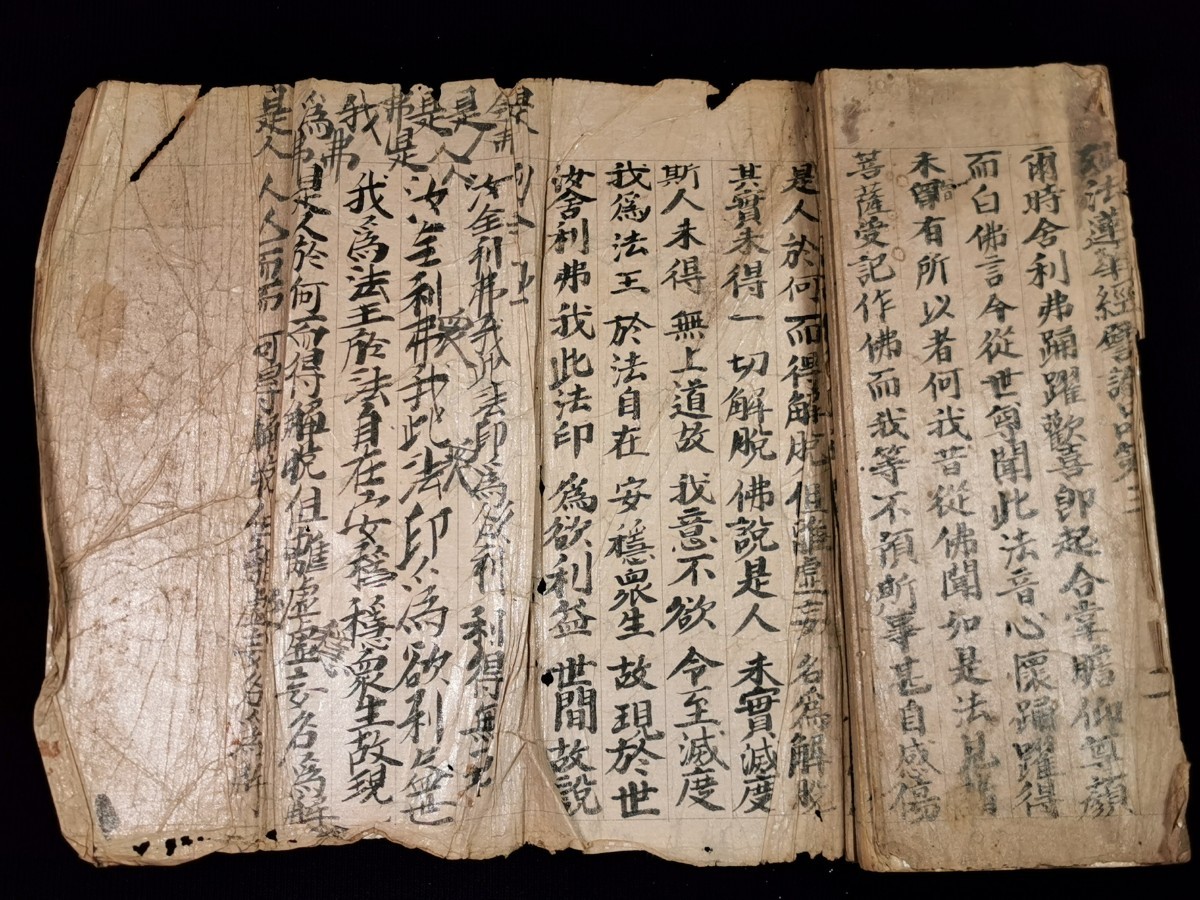 法蓮華經譬喻品第三
爾時舍利弗踊躍歡喜即起合掌瞻仰尊顏
而白佛言今從世尊聞此法音心懷踊躍得
未曾有所以者何我昔從佛聞如是法見諸
菩薩受記作佛而我等不預斯事甚自感傷
二
是人於何而得解脫但離虛妄名為解脫
其實未得一切解脫佛說是人未實滅度
斯人未得無上道故我意不欲令至滅度
我為法王於法自在安穩眾生故現於世
汝舍利弗我此法印為欲利益世間故說
汝舍利弗我此法印為欲利利得無
汝舍利弗我此法印為欲利益世
我為法王於法自在安穩穩眾生故現
是人於何而得解脫但離虛虛妄名為解
是人人而而